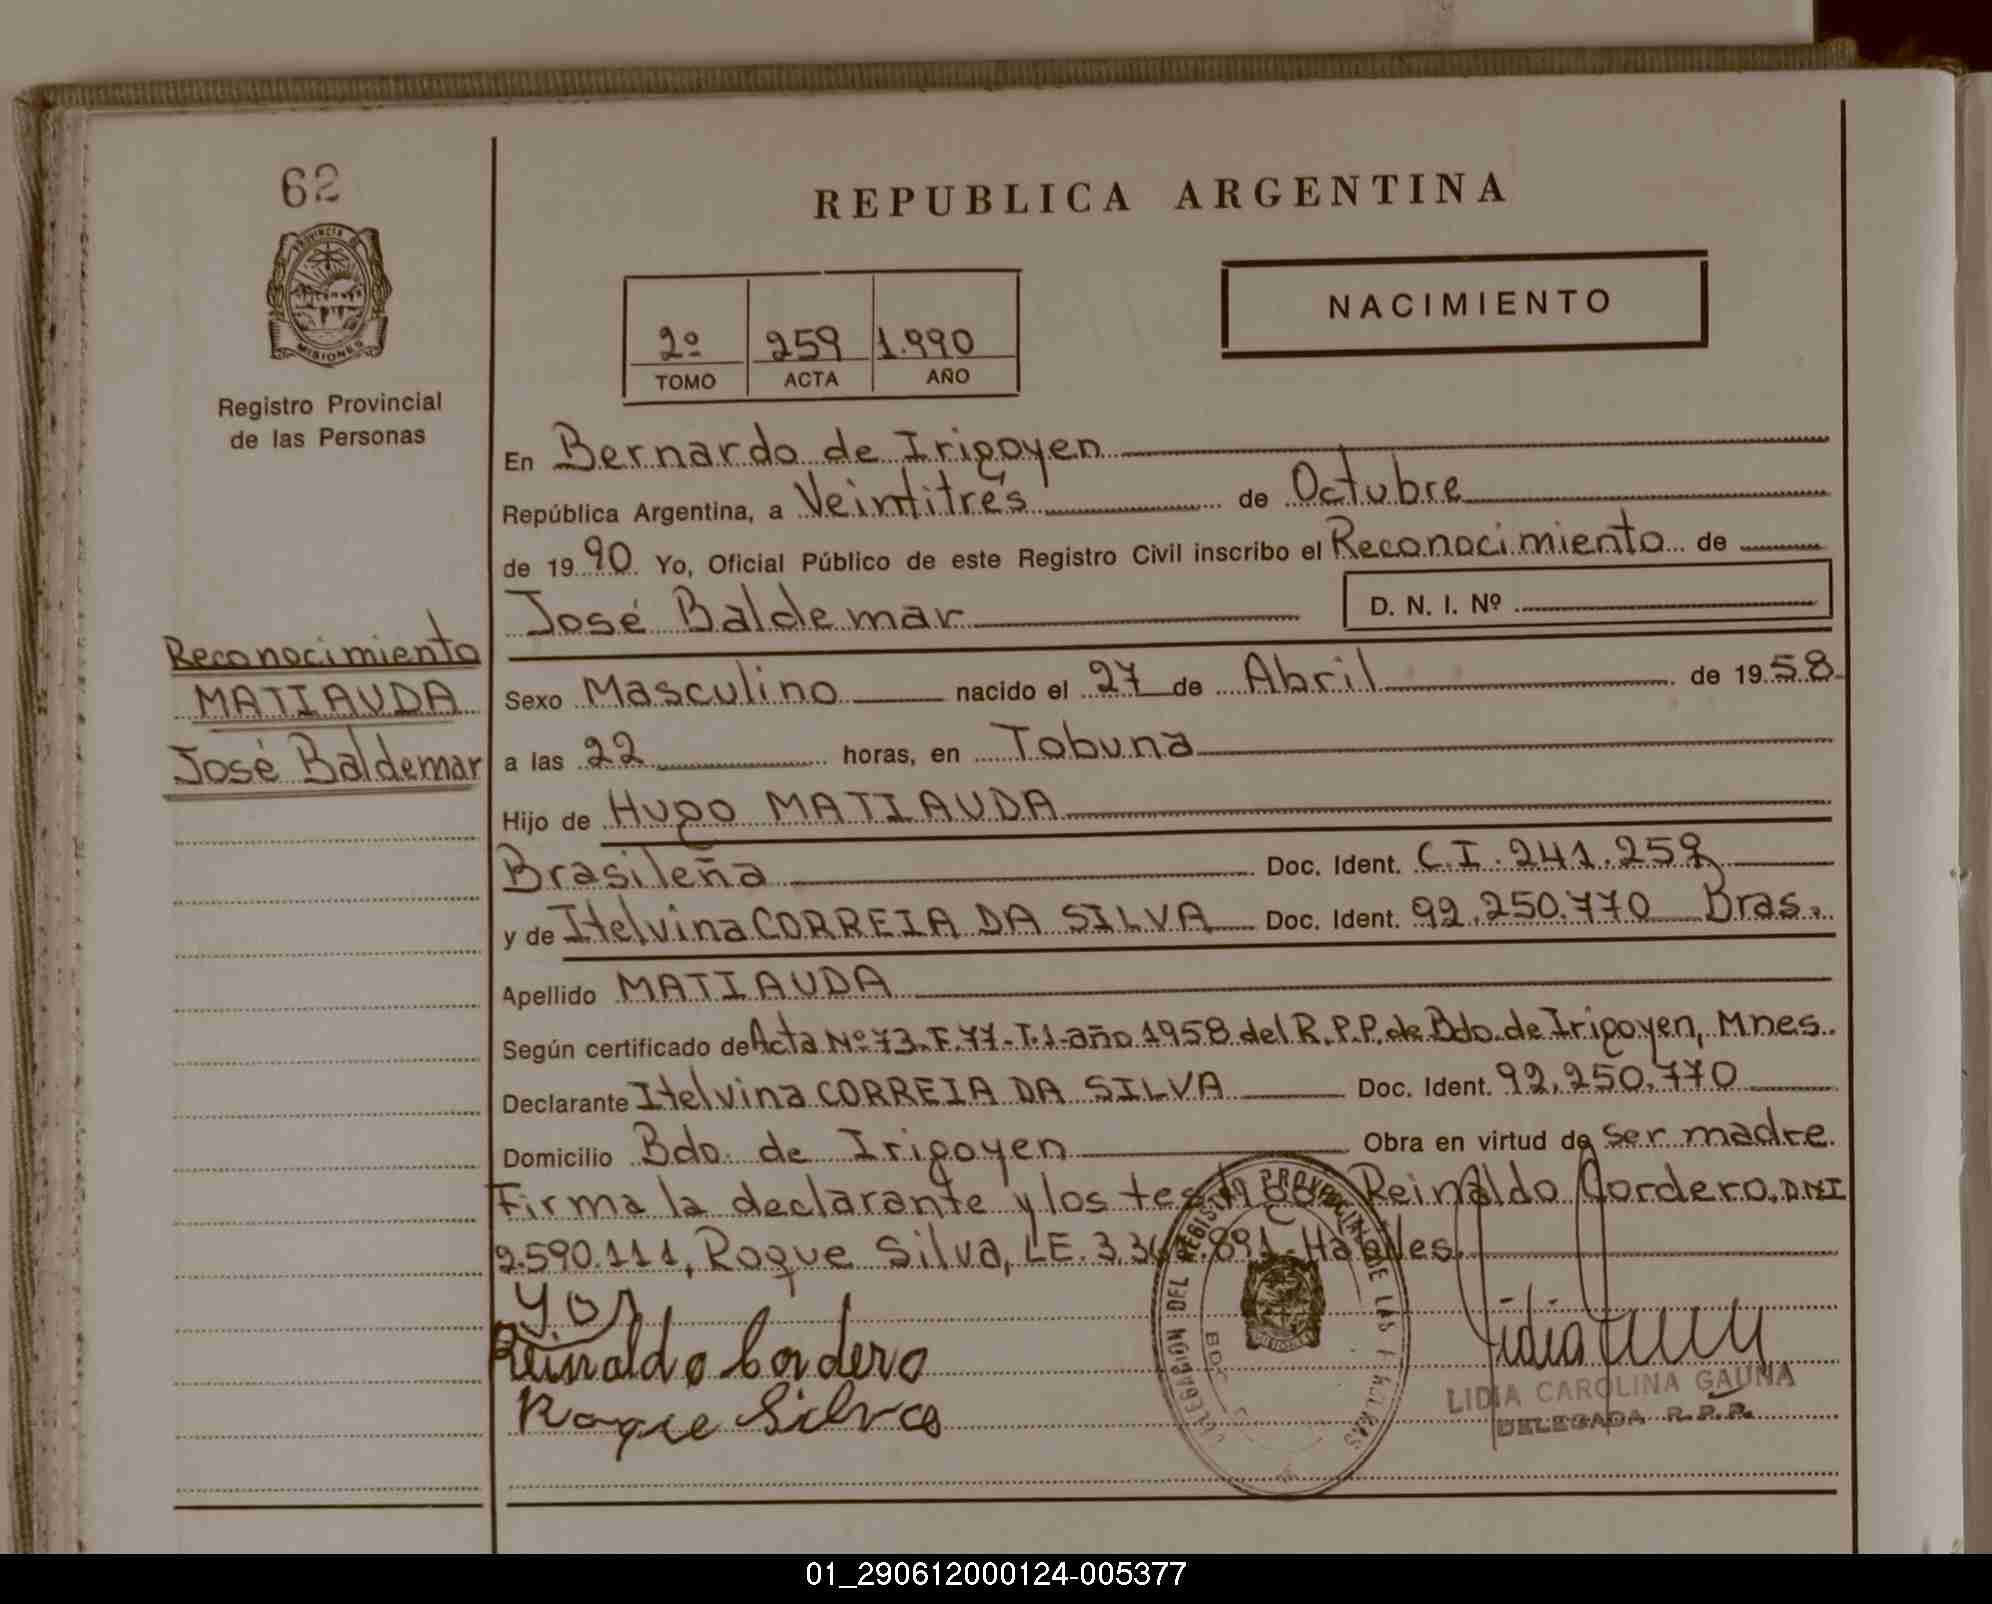 62
PROVINCIA DE
MISIONES
Registro Provincial
de las Personas
REPUBLICA ARGENTINA
NACIMIENTO
2º 259 1.990
TOMO ACTA AÑO
En Bernardo de Irigoyen
República Argentina, a Veintitrés de Octubre
de 1990 Yo, Oficial Público de este Registro Civil inscribo el Reconocimiento de
José Baldemar D. N. I. Nº
Reconocimiento
MATIAUDA
José Baldemar
Sexo Masculino nacido el 27 de Abril de 1958
a las 22 horas, en Tobuna
Hijo de Hugo MATIAUDA
Brasileña Doc. Ident. C.I. 241.259
y de Itelvina CORREIA DA SILVA Doc. Ident. 92.250.770 Bras.
Apellido MATIAUDA
Según certificado de Acta Nº 73-F.77-T.1-año 1958 del R.P.P. de Bdo. de Irigoyen, Mnes.
Declarante Itelvina CORREIA DA SILVA Doc. Ident. 92.250.770
Domicilio Bdo. de Irigoyen Obra en virtud de ser madre.
Firma la declarante y los Reinaldo Cordero, DNI
2.590.111, Roque Silva, LE.
Reinaldo Cordero
Roque Silva
DELEGACION DEL REGISTRO PROVINCIAL DE LAS PERSONAS
LIDIA CAROLINA GAUNA
DELEGADA R.P.P.
01_290612000124-005377